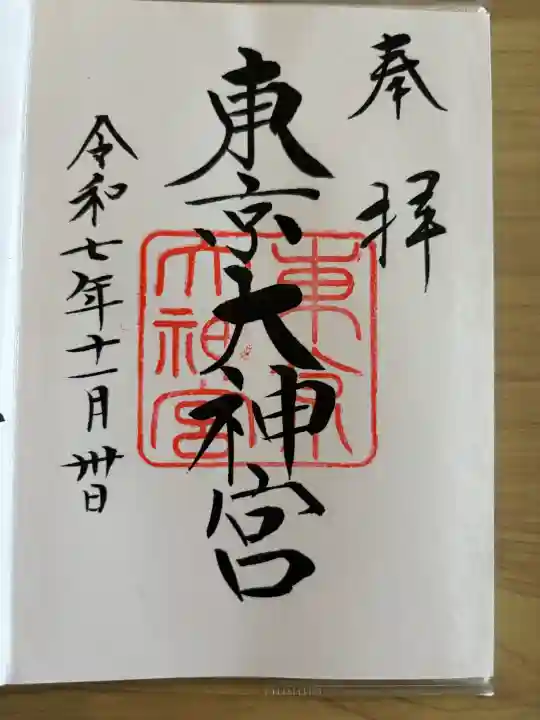 奉拝
東京大神宮
東京
大神宮
令和七年十一月卅日